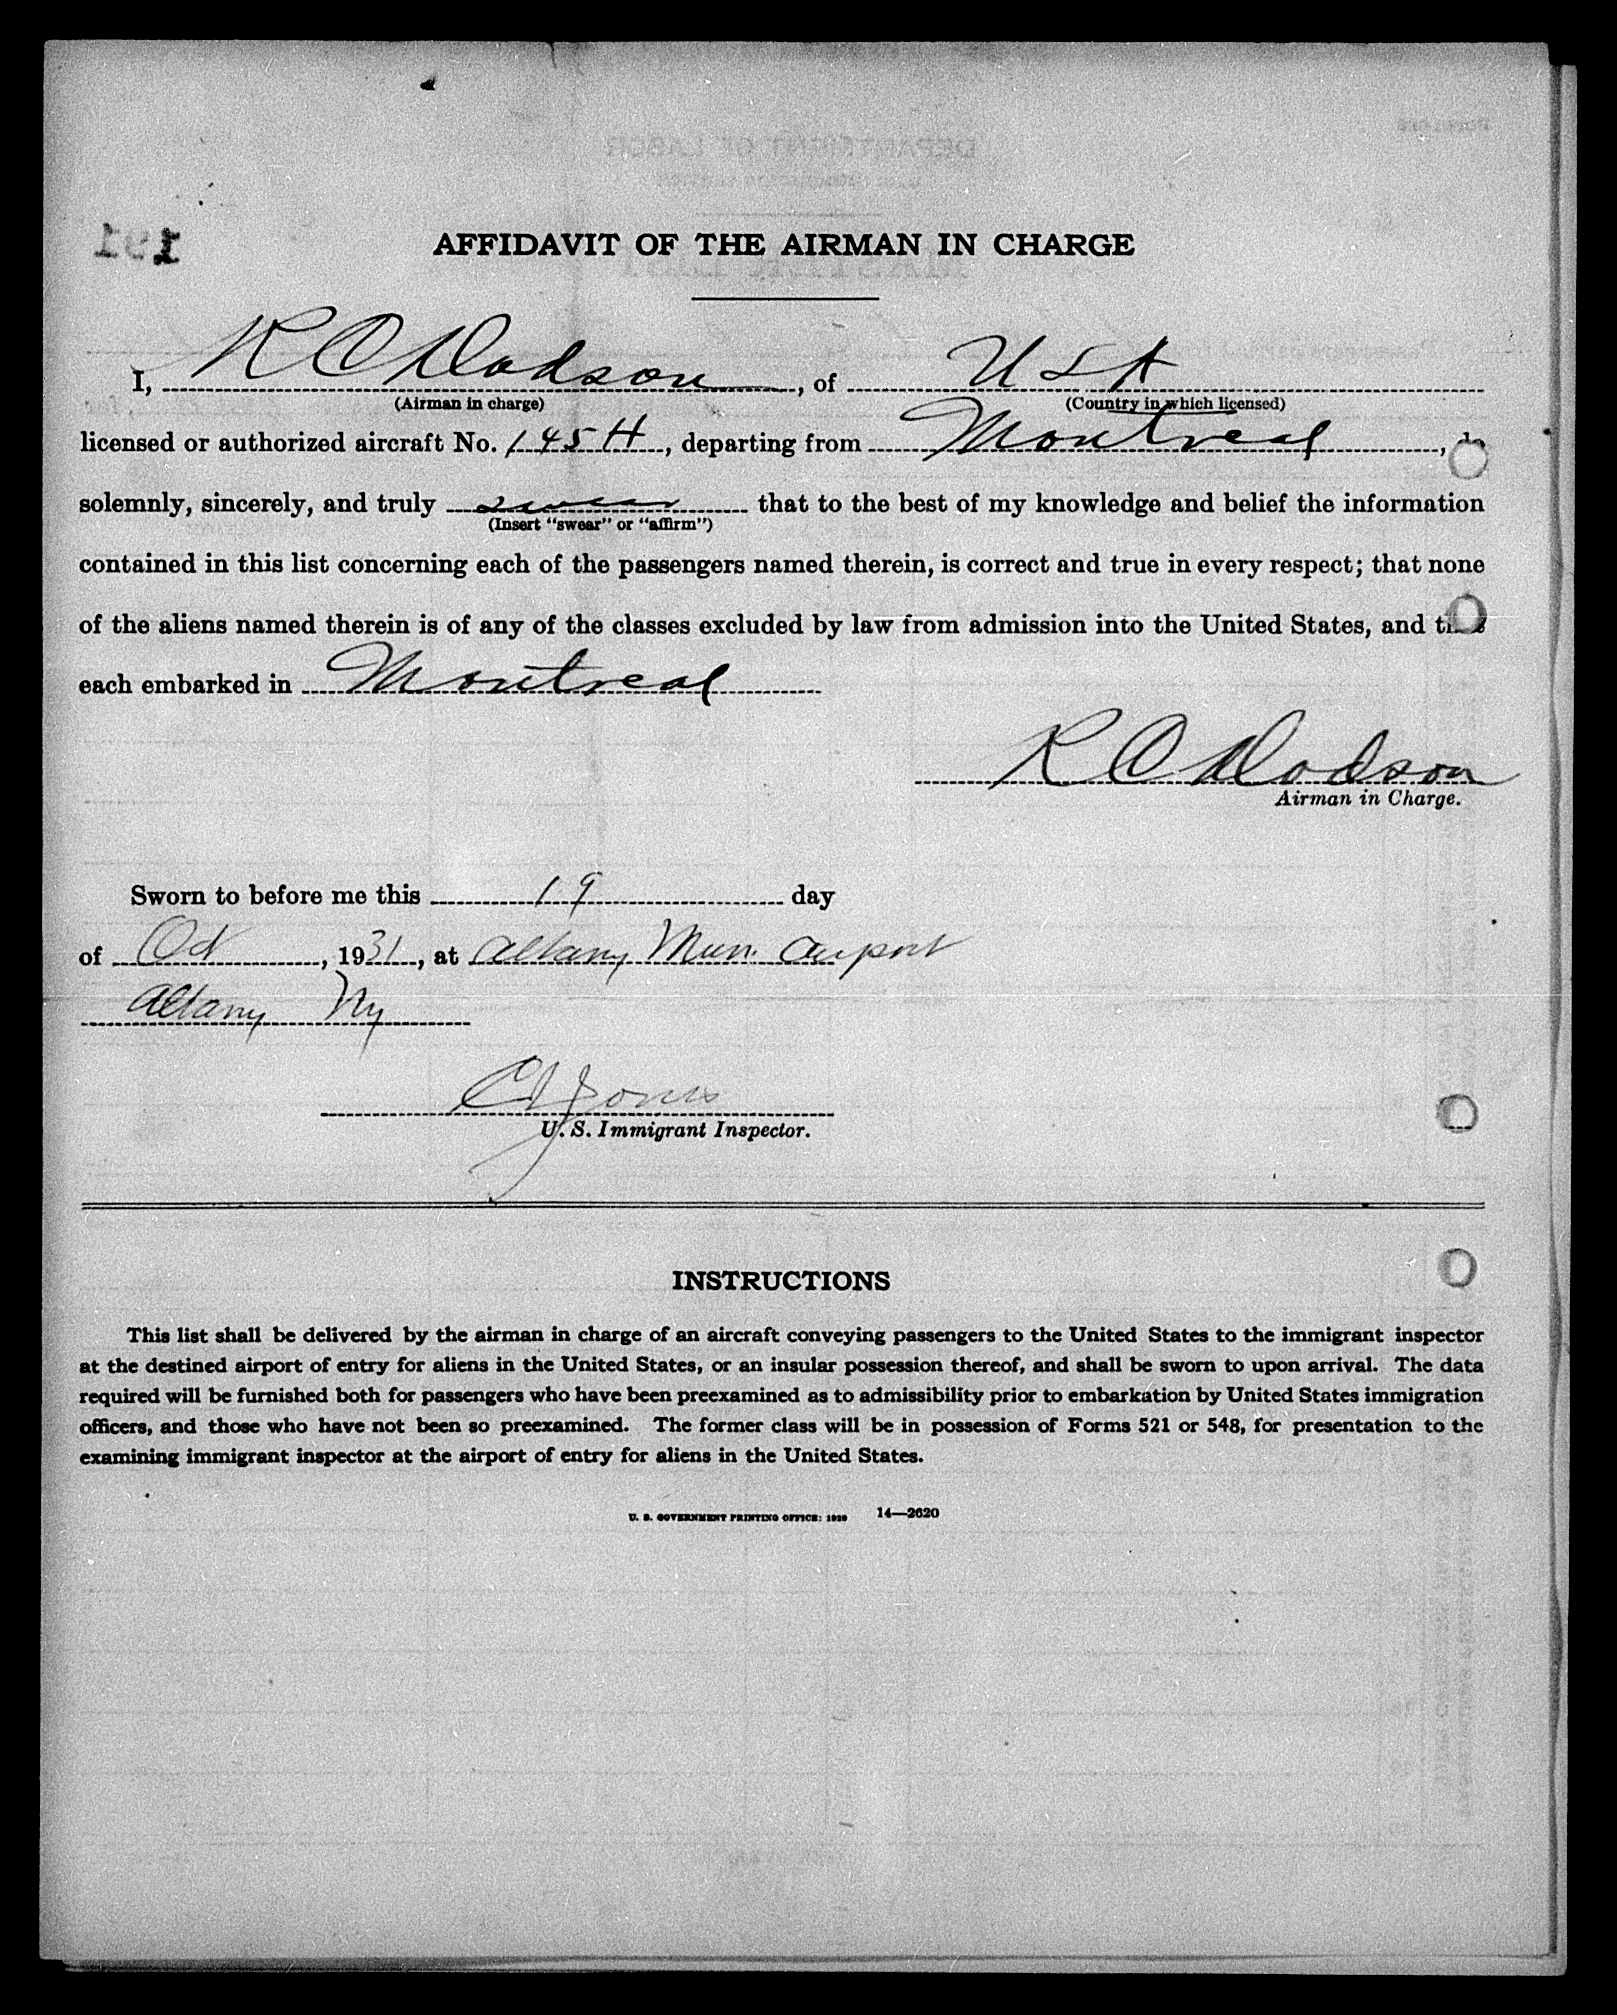 AFFIDAVIT OF THE AIRMAN IN CHARGE
I, R C Dodson, of USA
(Airman in charge) (Country in which licensed)
licensed or authorized aircraft No. 145H, departing from Montreal, do
solemnly, sincerely, and truly swear that to the best of my knowledge and belief the information
(Insert "swear" or "affirm")
contained in this list concerning each of the passengers named therein, is correct and true in every respect; that none
of the aliens named therein is of any of the classes excluded by law from admission into the United States, and that
each embarked in Montreal
R C Dodson
Airman in Charge.
Sworn to before me this 19 day
of Oct, 1931, at Albany Mun. Airport
Albany Ny
Jones
U. S. Immigrant Inspector.
INSTRUCTIONS
This list shall be delivered by the airman in charge of an aircraft conveying passengers to the United States to the immigrant inspector
at the destined airport of entry for aliens in the United States, or an insular possession thereof, and shall be sworn to upon arrival. The data
required will be furnished both for passengers who have been preexamined as to admissibility prior to embarkation by United States immigration
officers, and those who have not been so preexamined. The former class will be in possession of Forms 521 or 548, for presentation to the
examining immigrant inspector at the airport of entry for aliens in the United States.
U. S. GOVERNMENT PRINTING OFFICE: 14—2620